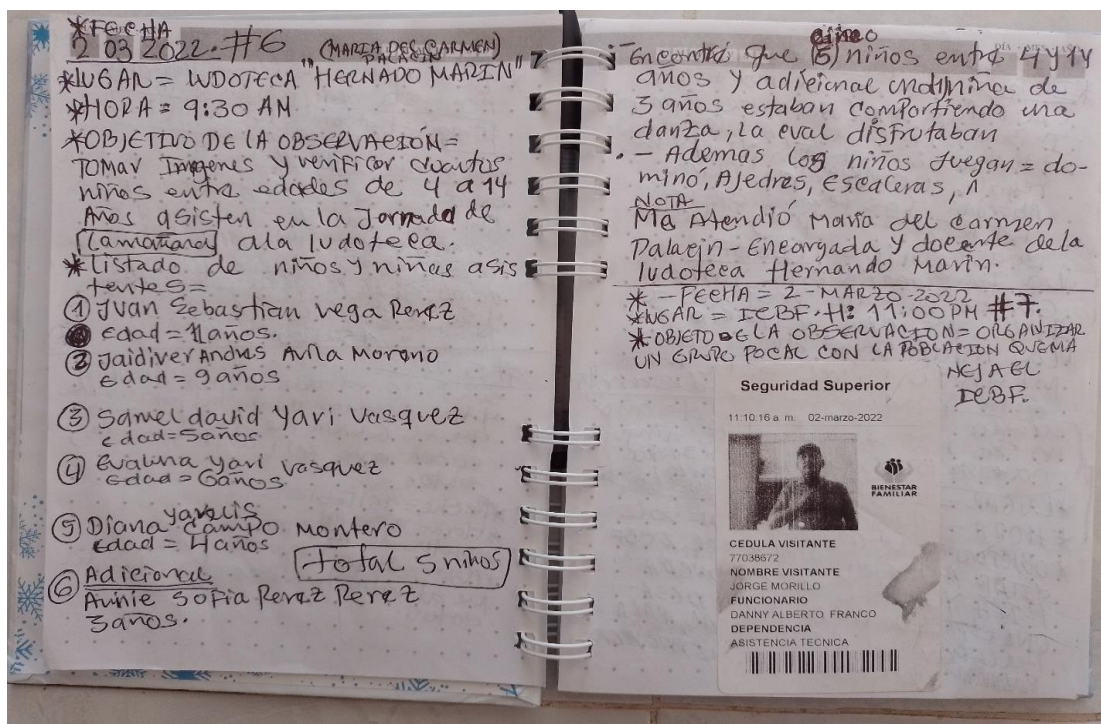 *FECHA
2 03 2022. #6 (MARIA DEL CARMEN)
PALACIN
*LUGAR = LUDOTECA "HERNADO MARIN"
*HORA = 9:30 AM
*OBJETIVO DE LA OBSERVACIÓN =
TOMAR Imgenes y verificar cuantos
niños entre edades de 4 a 14
Años asisten en la Jornada de
la mañana a la ludoteca.
*Listado de niños y niñas asis
tentes =
① Juan Sebastian Vega Perez
edad = 11 años.
② Jaidiver Andres Avila Moreno
edad = 9 años
③ Samel david Yari Vasquez
edad = 5 años
④ Evaluna Yari Vasquez
edad = 6 años
⑤ Diana Yarelis Campo Montero
edad = 4 años
total 5 niños
⑥ Adicional
Annie Sofia Perez Perez
3 años.
- Encontré que cinco (5) niños entre 4 y 14
años y adicional una niña de
3 años estaban compartiendo una
danza, la cual disfrutaban
- Ademas los niños Juegan = do-
minó, Ajedres, escaleras,
NOTA
Me Atendió María del Carmen
Palacin - Encargada y docente de la
ludoteca Hernando Marin.
* - FECHA = 2 - MARZO - 2022 #7.
*LUGAR = ICBF. H: 11:00 PM
*OBJETO DE LA OBSERVACION = ORGANIZAR
UN GRUPO FOCAL CON LA POBLACION QUE MA
NEJA EL
ICBF.
Seguridad Superior
11:10:16 a. m. 02-marzo-2022
BIENESTAR
FAMILIAR
CEDULA VISITANTE
77038672
NOMBRE VISITANTE
JORGE MORILLO
FUNCIONARIO
DANNY ALBERTO FRANCO
DEPENDENCIA
ASISTENCIA TECNICA